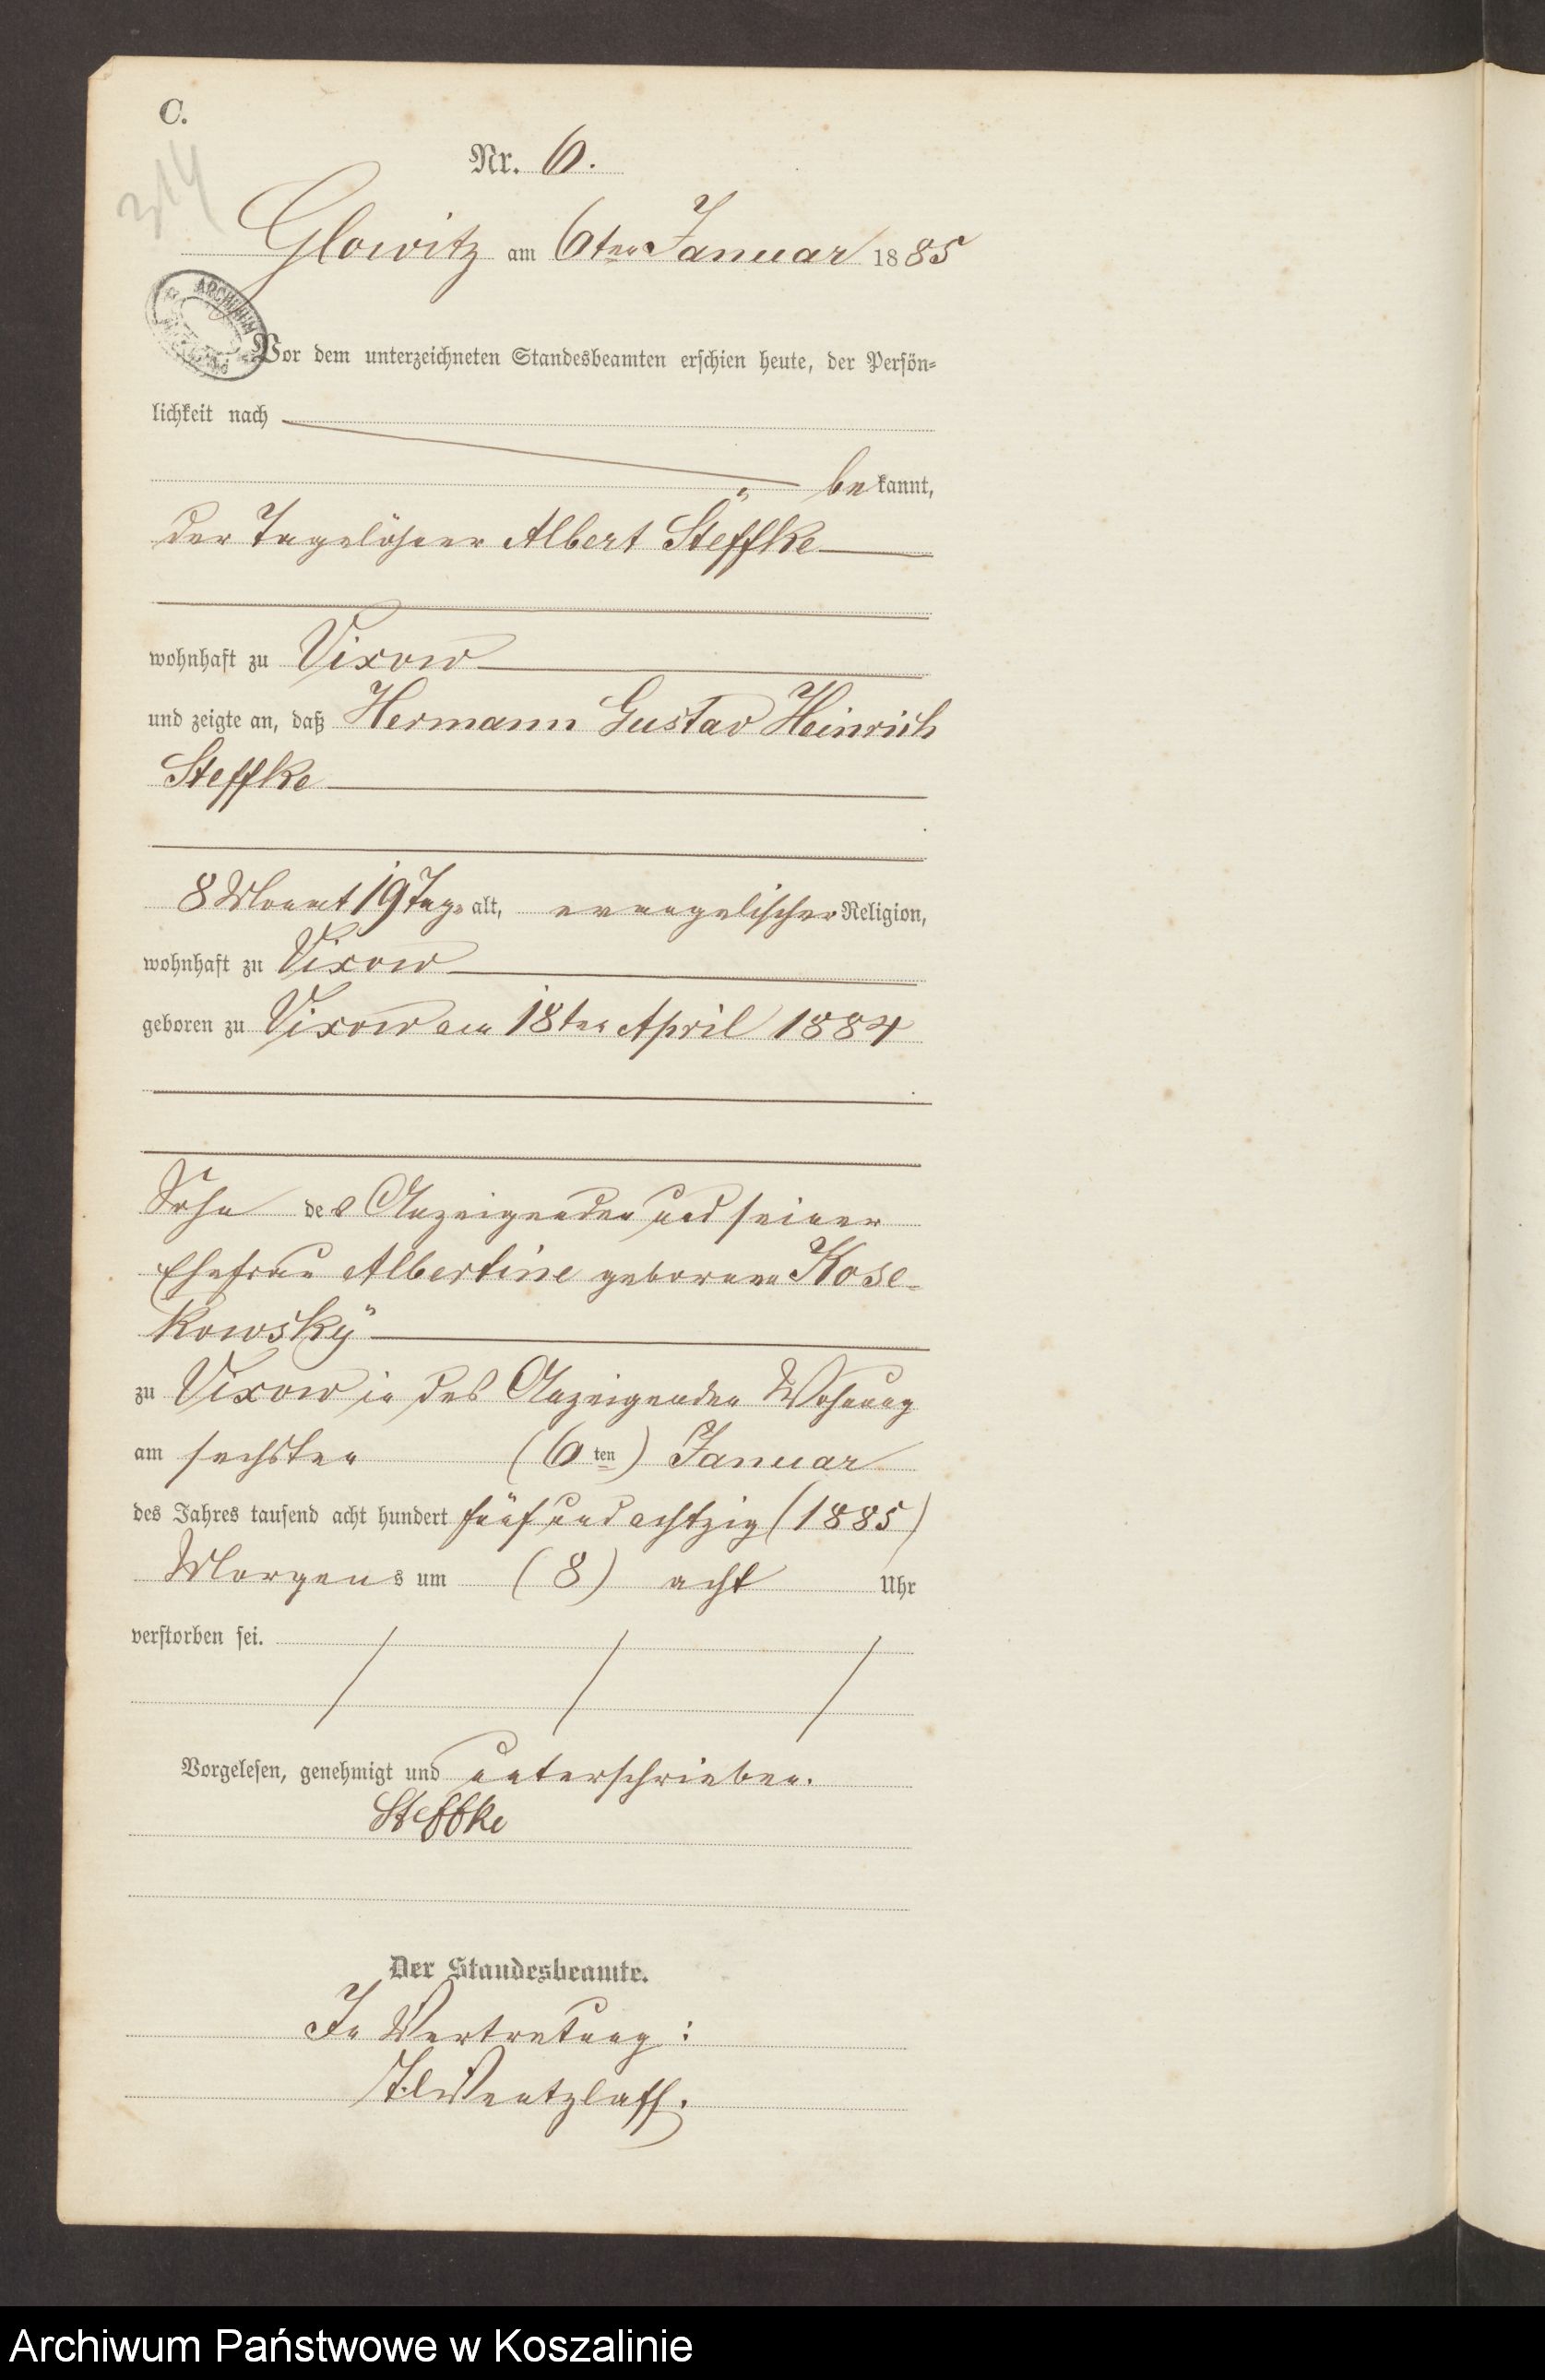 C.
314
Nr. 6.
Glowitz am 6ten Januar 1885
ARCHIWUM
Vor dem unterzeichneten Standesbeamten erschien heute, der Persön-
lichkeit nach
bekannt,
der Tagelöhner Albert Steffke
wohnhaft zu Vixow
und zeigte an, daß Hermann Gustav Heinrich
Steffke
8 Monat 19 Tage alt, evangelischer Religion,
wohnhaft zu Vixow
geboren zu Vixow am 18ten April 1884
Sohn des Anzeigenden und seiner
Ehefrau Albertine geborene Kose-
kowsky
zu Vixow in des Anzeigenden Wohnung
am sechsten (6ten) Januar
des Jahres tausend acht hundert fünf und achtzig (1885)
Morgens um (8) acht Uhr
verstorben sei.
Vorgelesen, genehmigt und unterschrieben.
Steffke
Der Standesbeamte.
In Vertretung:
Wentzlaff.
Archiwum Państwowe w Koszalinie